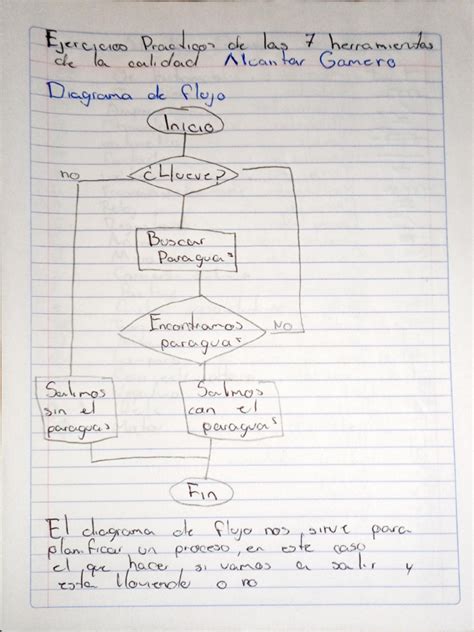 Ejercicios Practicos de las 7 herramientas
de la calidad Alcantar Gamero
Diagrama de flujo
Inicio
no
¿Llueve?
Buscar
Paraguas
Encontramos
paraguas
NO
Salimos
sin el
paraguas
Salimos
con el
paraguas
Fin
El diagrama de flujo nos sirve para
planificar un proceso, en este caso
el que hacer, si vamos a salir y
esta lloviendo o no